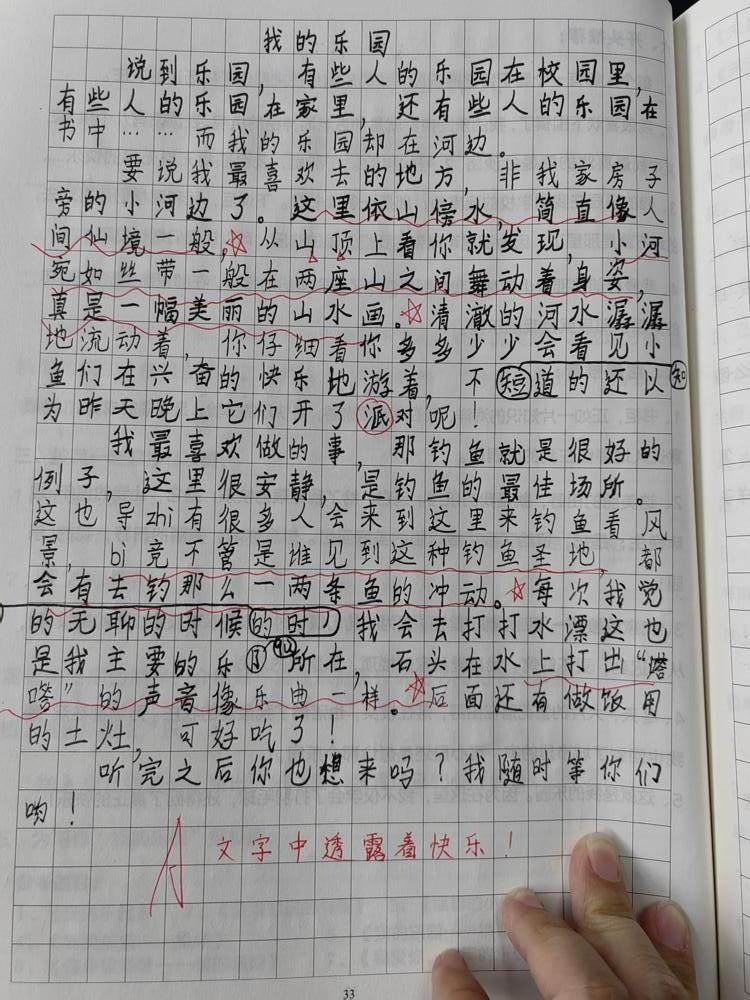 我的乐园
说到乐园,有些人的乐园在校园里,
有些人的乐园,在家里,还有些人的乐园,在
书中……而我的乐园却在河边。
要说我最喜欢去的地方,非我家房子
旁的小河边了。这里依山傍水,简直像人
间仙境一般,从山顶上看你就发现,小河
宛如丝带一般在两座山之间舞动着身姿,
真是一幅美丽的山水画。清澈的河水潺潺
地流动着,你仔细看你多多少少会看见小
鱼们在兴奋的快乐地游着,不短道的还以 知
为昨天晚上它们开了派对呢!
我最喜欢做的事,那钓鱼就是很好的
例子,这里很安静,是钓鱼的最佳场所。
这也导zhi有很多人,会来到这里来钓鱼看风
景,bi竞不管是谁见到这种钓鱼圣地,都
会有去钓那么一两条鱼的冲动。每次,我觉
的无聊的时候的时,我会去打打水漂这也
是我主要的乐所在,石头在水上打出“嗒
嗒”的声音像乐曲一样。后面还有做饭用
的土灶,可好吃了!
听完之后你也想来吗?我随时等你们
哟!
文字中透露着快乐!
33